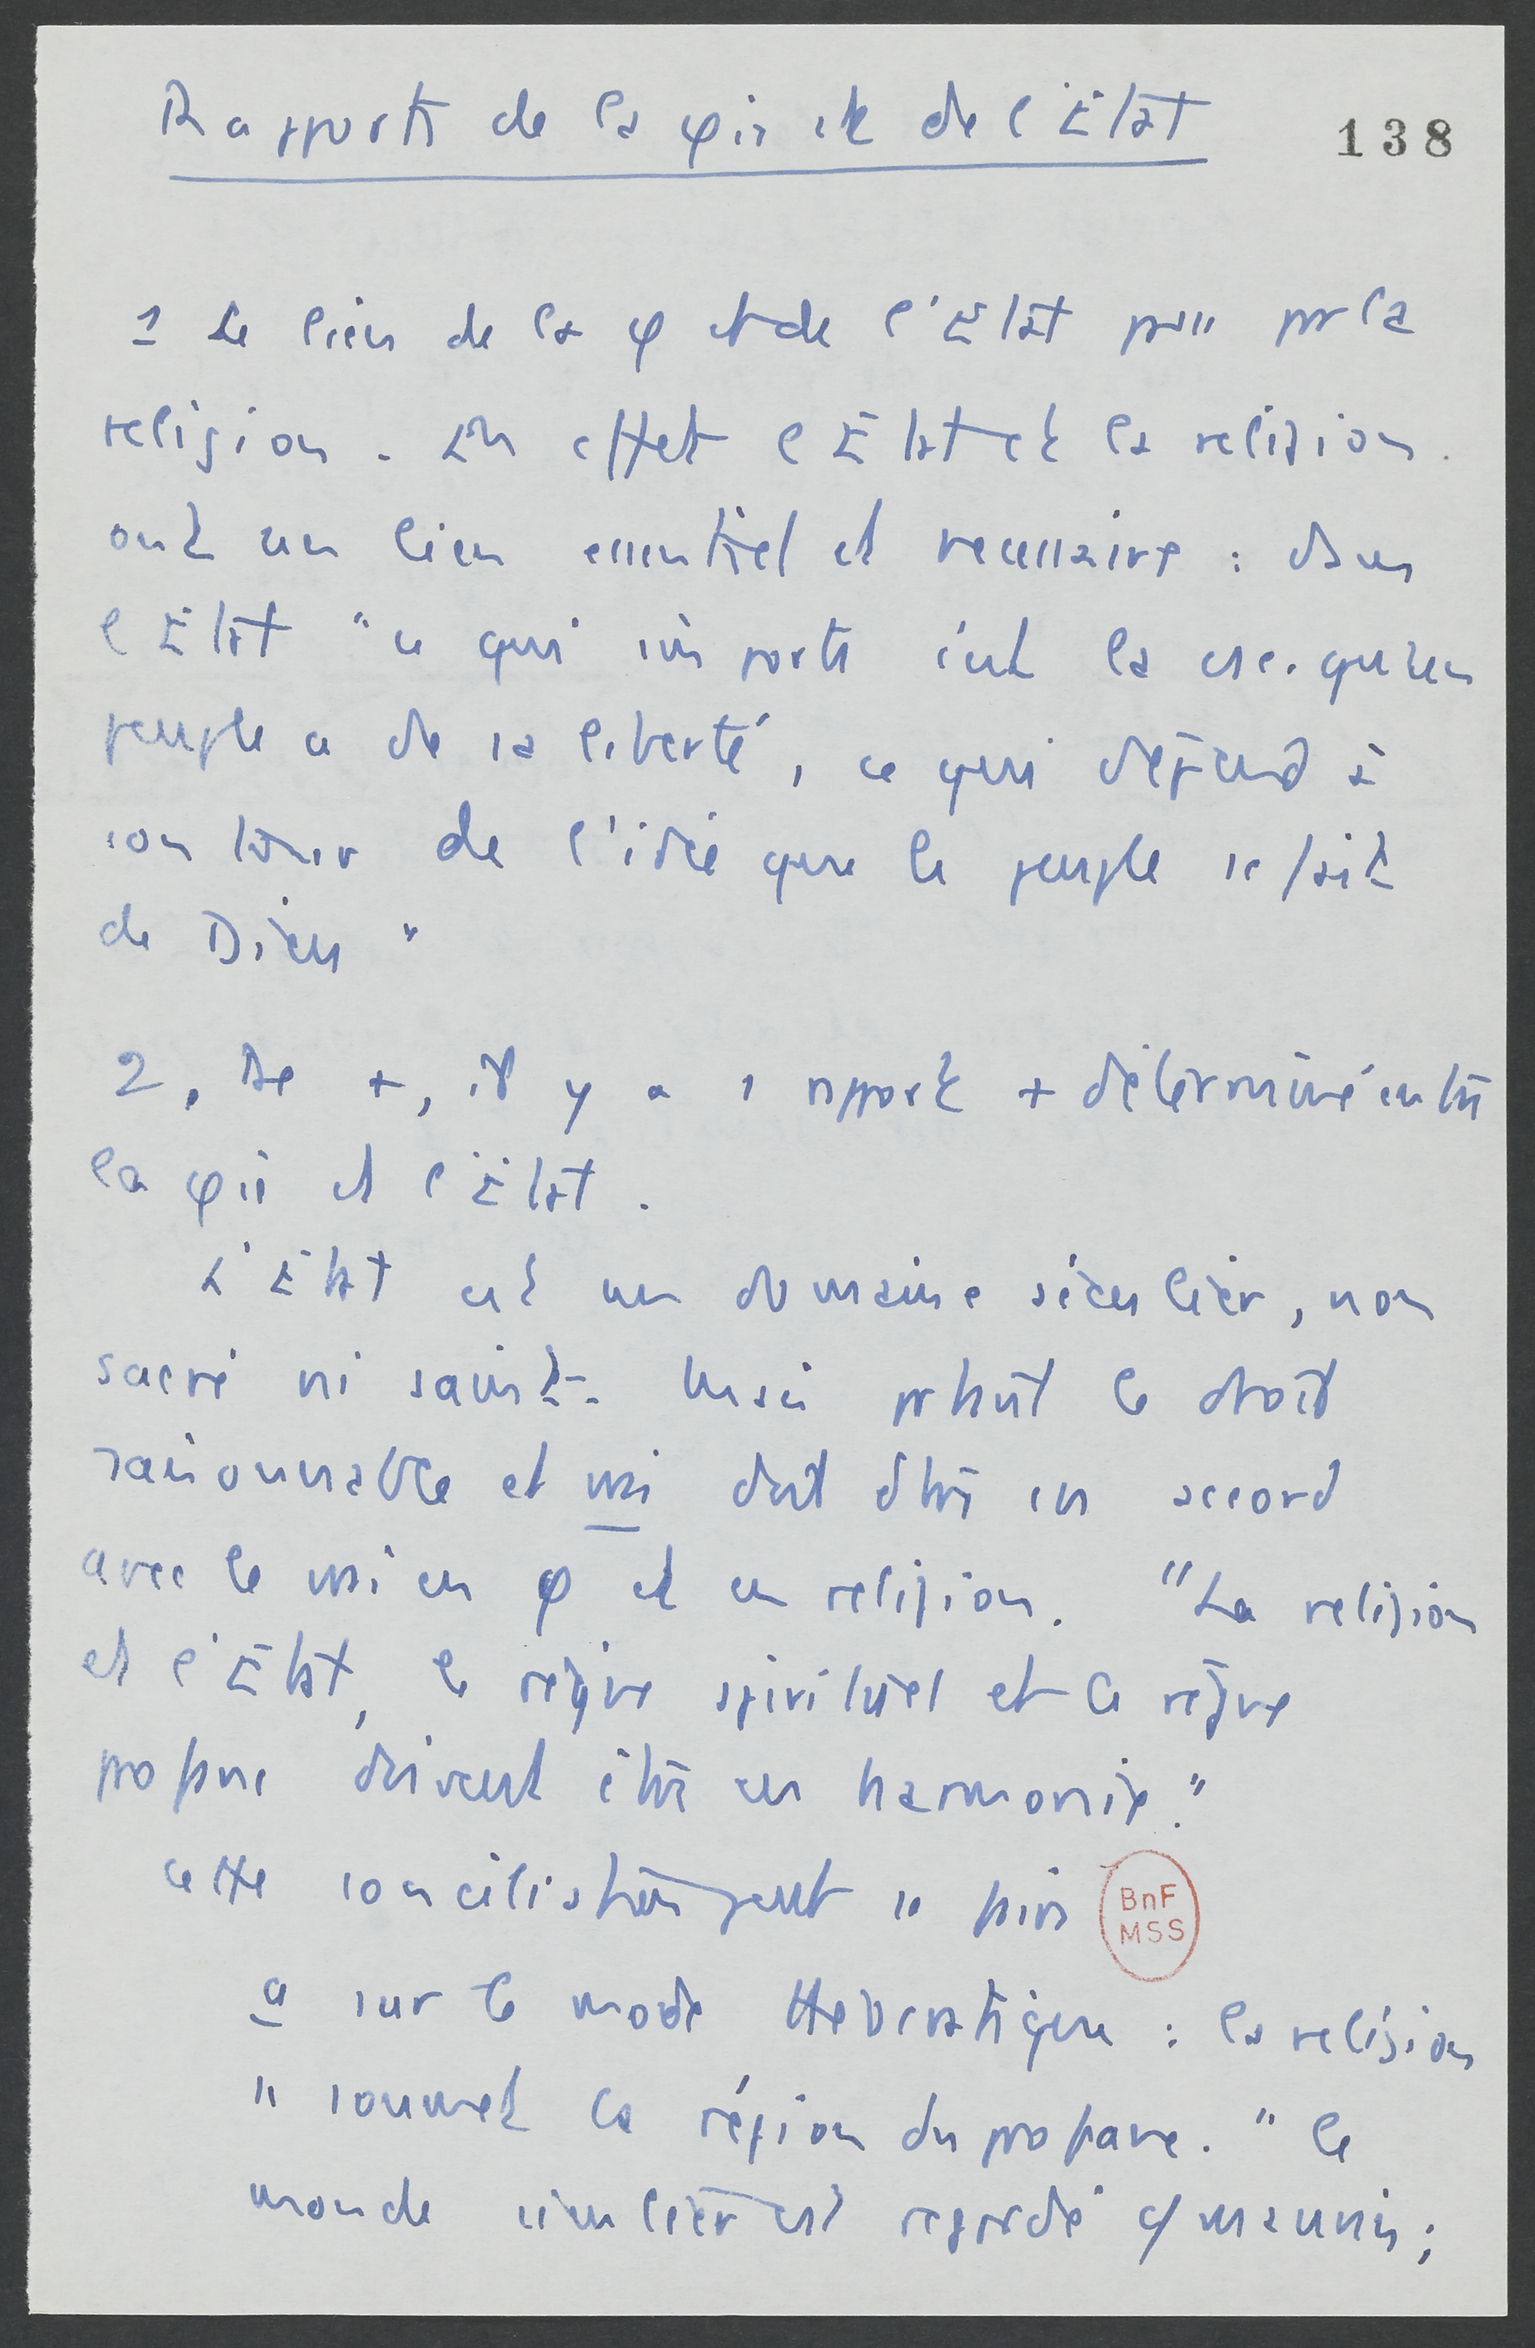 Rapports de la φie et de l'État
138
1 Le lien de la φ et de l'État passe par la
religion. En effet l'État et la religion
ont un lien essentiel et necessaire : dans
l'État "ce qui importe c'est la csc. qu'un
peuple a de sa liberté, ce qui dépend à
son tour de l'idée que le peuple se fait
de Dieu"
2, De +, il y a 1 rapport + déterminé entre
la φie et l'État.
L'État est un domaine séculier, non
sacré ni saint. Mais prtant le droit
raisonnable et vrai doit être en accord
avec le vrai en φ et en religion. "La religion
et l'État, le règne spirituel et le règne
profane doivent être en harmonie."
Cette conciliation peut se faire
BnF
MSS
a sur le mode théocratique : la religion
"soumet la région du profane." le
monde séculier est regardé c/ mauvais;